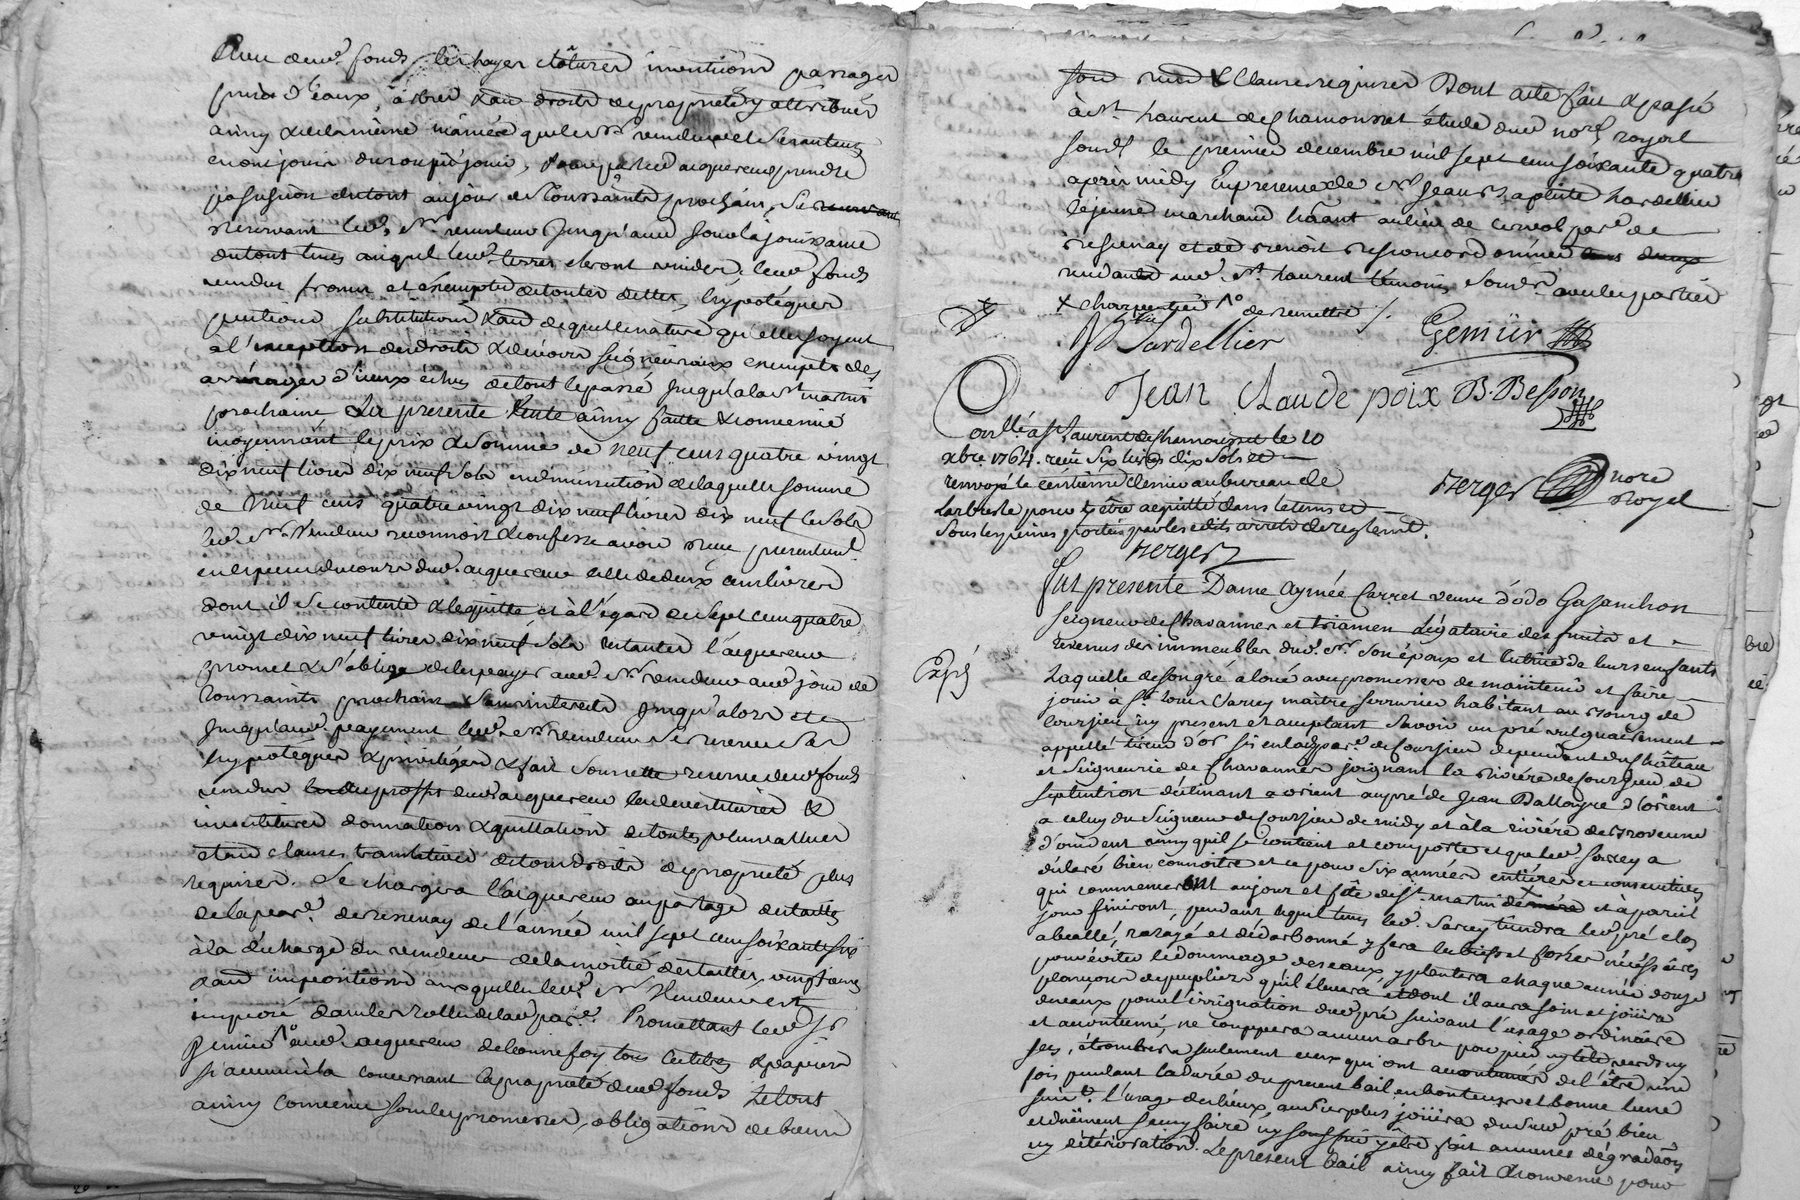 fonds, les hayes clôtures mentionné passages
prise d'eaux, arbres & aud. droits de propriété y attribués
ainsy & de la même manière que led. Sr vendeur et ses autheurs
en ont jouis du ou pû jouir, acquereur prendre
possession du tout au jour de Toussaints prochain, se
reservant led. Sr vendeur jusqu'aud. sous la jouissance
du tout tems auquel led. terres seront vuides. led. fonds
vendus francs et exempts de toutes dettes, hypotéques
pentions substitutions & aud. de quelle nature qu'elles soyent
à l'exception des droits & devoirs seigneuriaux exempts des
arrérages d'iceux échus de tout le passé jusqu'à la St martin
prochaine La presente Vente ainsy faitte & convenue
moyennant le prix & somme de neuf cens quatre vingt
dix neuf livres dix neuf sols en diminution de laquelle somme
de Neuf cens quatre vingt dix neuf livres dix neuf sols
led. Sr Vendeur reconnoit & confesse avoir reçu presentement
en espèces du cours dud. acquereur celle de deux cens livres
dont il se contente & le quitte et à l'égard des sept cens quatre
vingt dix neuf livres dix neuf sols restantes l'acquereur
promet & s'oblige de les payer aud. Sr vendeur aud. jour de
Toussaints prochain sans interests jusqu'alors et
jusqu'aud. payement led. Sr Vendeur se reserve ses
hypotéques & privilèges & fait sous cette reserve dud. fonds
vendus au proffit dud. acquereur les devestitures &
investitures donnations & quittations de toutes plus values
et aud. clauses translatives de tous droits de propriété plus
requises. Se chargera l'acquereur au partage des tailles
de la parse. de Bessenay de l'année mil sept cens soixante six
à la décharge du vendeur de la moitié des tailles, vingtiemes
& aud. impositions auxquelles led. Sr Vendeur est
imposé dans les rolles de lad. parse. Promettant led. Sr
Gemier aud. acquereur de bonne foy tous les titres & papiers
s'il en a concernant la propriété dud. fonds Le tout
ainsy convenu sous les promesses, obligations de biens
son & Clauses requises Dont acte fait & passé
à St. Laurent de Chamousset étude dud. nore. royal
soussé. le premier decembre mil sept cens soixante quatre
après midy En presence de Sr Jean Baptiste hardellier
le jeune marchand hâant au lieu de parse. de
Bessenay et de Benoit Besson cordonnier
résidant aud. St. Laurent témoins soussé. avec les parties
+ charpentier de remettre /.
JB hardellier
Gemiir
Jean Claude poix B. Besson
Conllé à St Laurent de Chamousset le 10
xbre 1764. reçu six livres dix sols et
renvoyé le centieme denier au bureau de
Larbresle pour y être acquitté dans le tems et
sous les peines portées par les edits arrets & reglemt.
Berger
Berger nore
Royal
Fut presente Dame Aymée Carret veuve d'odo Gasanchon
Seigneur de Chavannes et tramen légataire des fruits et
revenus des immeubles dud. Sr. son époux et tutrice de leurs enfants
Expé
Laquelle de son gré a loué avec promesses de maintenir et faire
jouir à Sr. Louis Sarcey maitre serrurier habitant au Bourg de
Coursieu icy present et acceptant Savoir un pré vulgairement
appellé tireu d'or sis en lad. parse. de Coursieu dependant du château
et Seigneurie de Chavannes joignant la riviere de Coursieu de
septentrion déclinant à orient au pré de Jean Dallogne d'orient
à celuy du Seigneur de Coursieu de midy et à la riviere de Brevenne
d'occident ainsy qu'il se contient et comporte et que led. Sarcey a
déclaré bien connoitre et ce pour six années entières et consecutives
qui commenceront au jour et fête de St. martin et à pareil
jour finiront, pendant lequel tems led. Sarcey tiendra led. pré clos
abealié, rasagé et désarbonné, y fera les biefs et fosses nécéssaires
pour éviter le dommage des eaux, y plantera chaque année douze
plançons de peupliers qu'il élevera et dont il aura soin et jouira
des eaux pour l'irrigation dud. pré suivant l'usage ordinaire
et accoutumé, ne couppera aucun arbre par pied ny tête verds ny
secs, ébranchera seulement ceux qui ont accoutumés de l'être une
fois pendant la durée du present bail en bon tems et bonne lune
suivt. l'usage des lieux, au surplus jouira dud. pré bien
et düement sans y faire ny souffrir y être fait aucunes dégradaons
ny détériorations. Le present bail ainsy fait & convenu pour